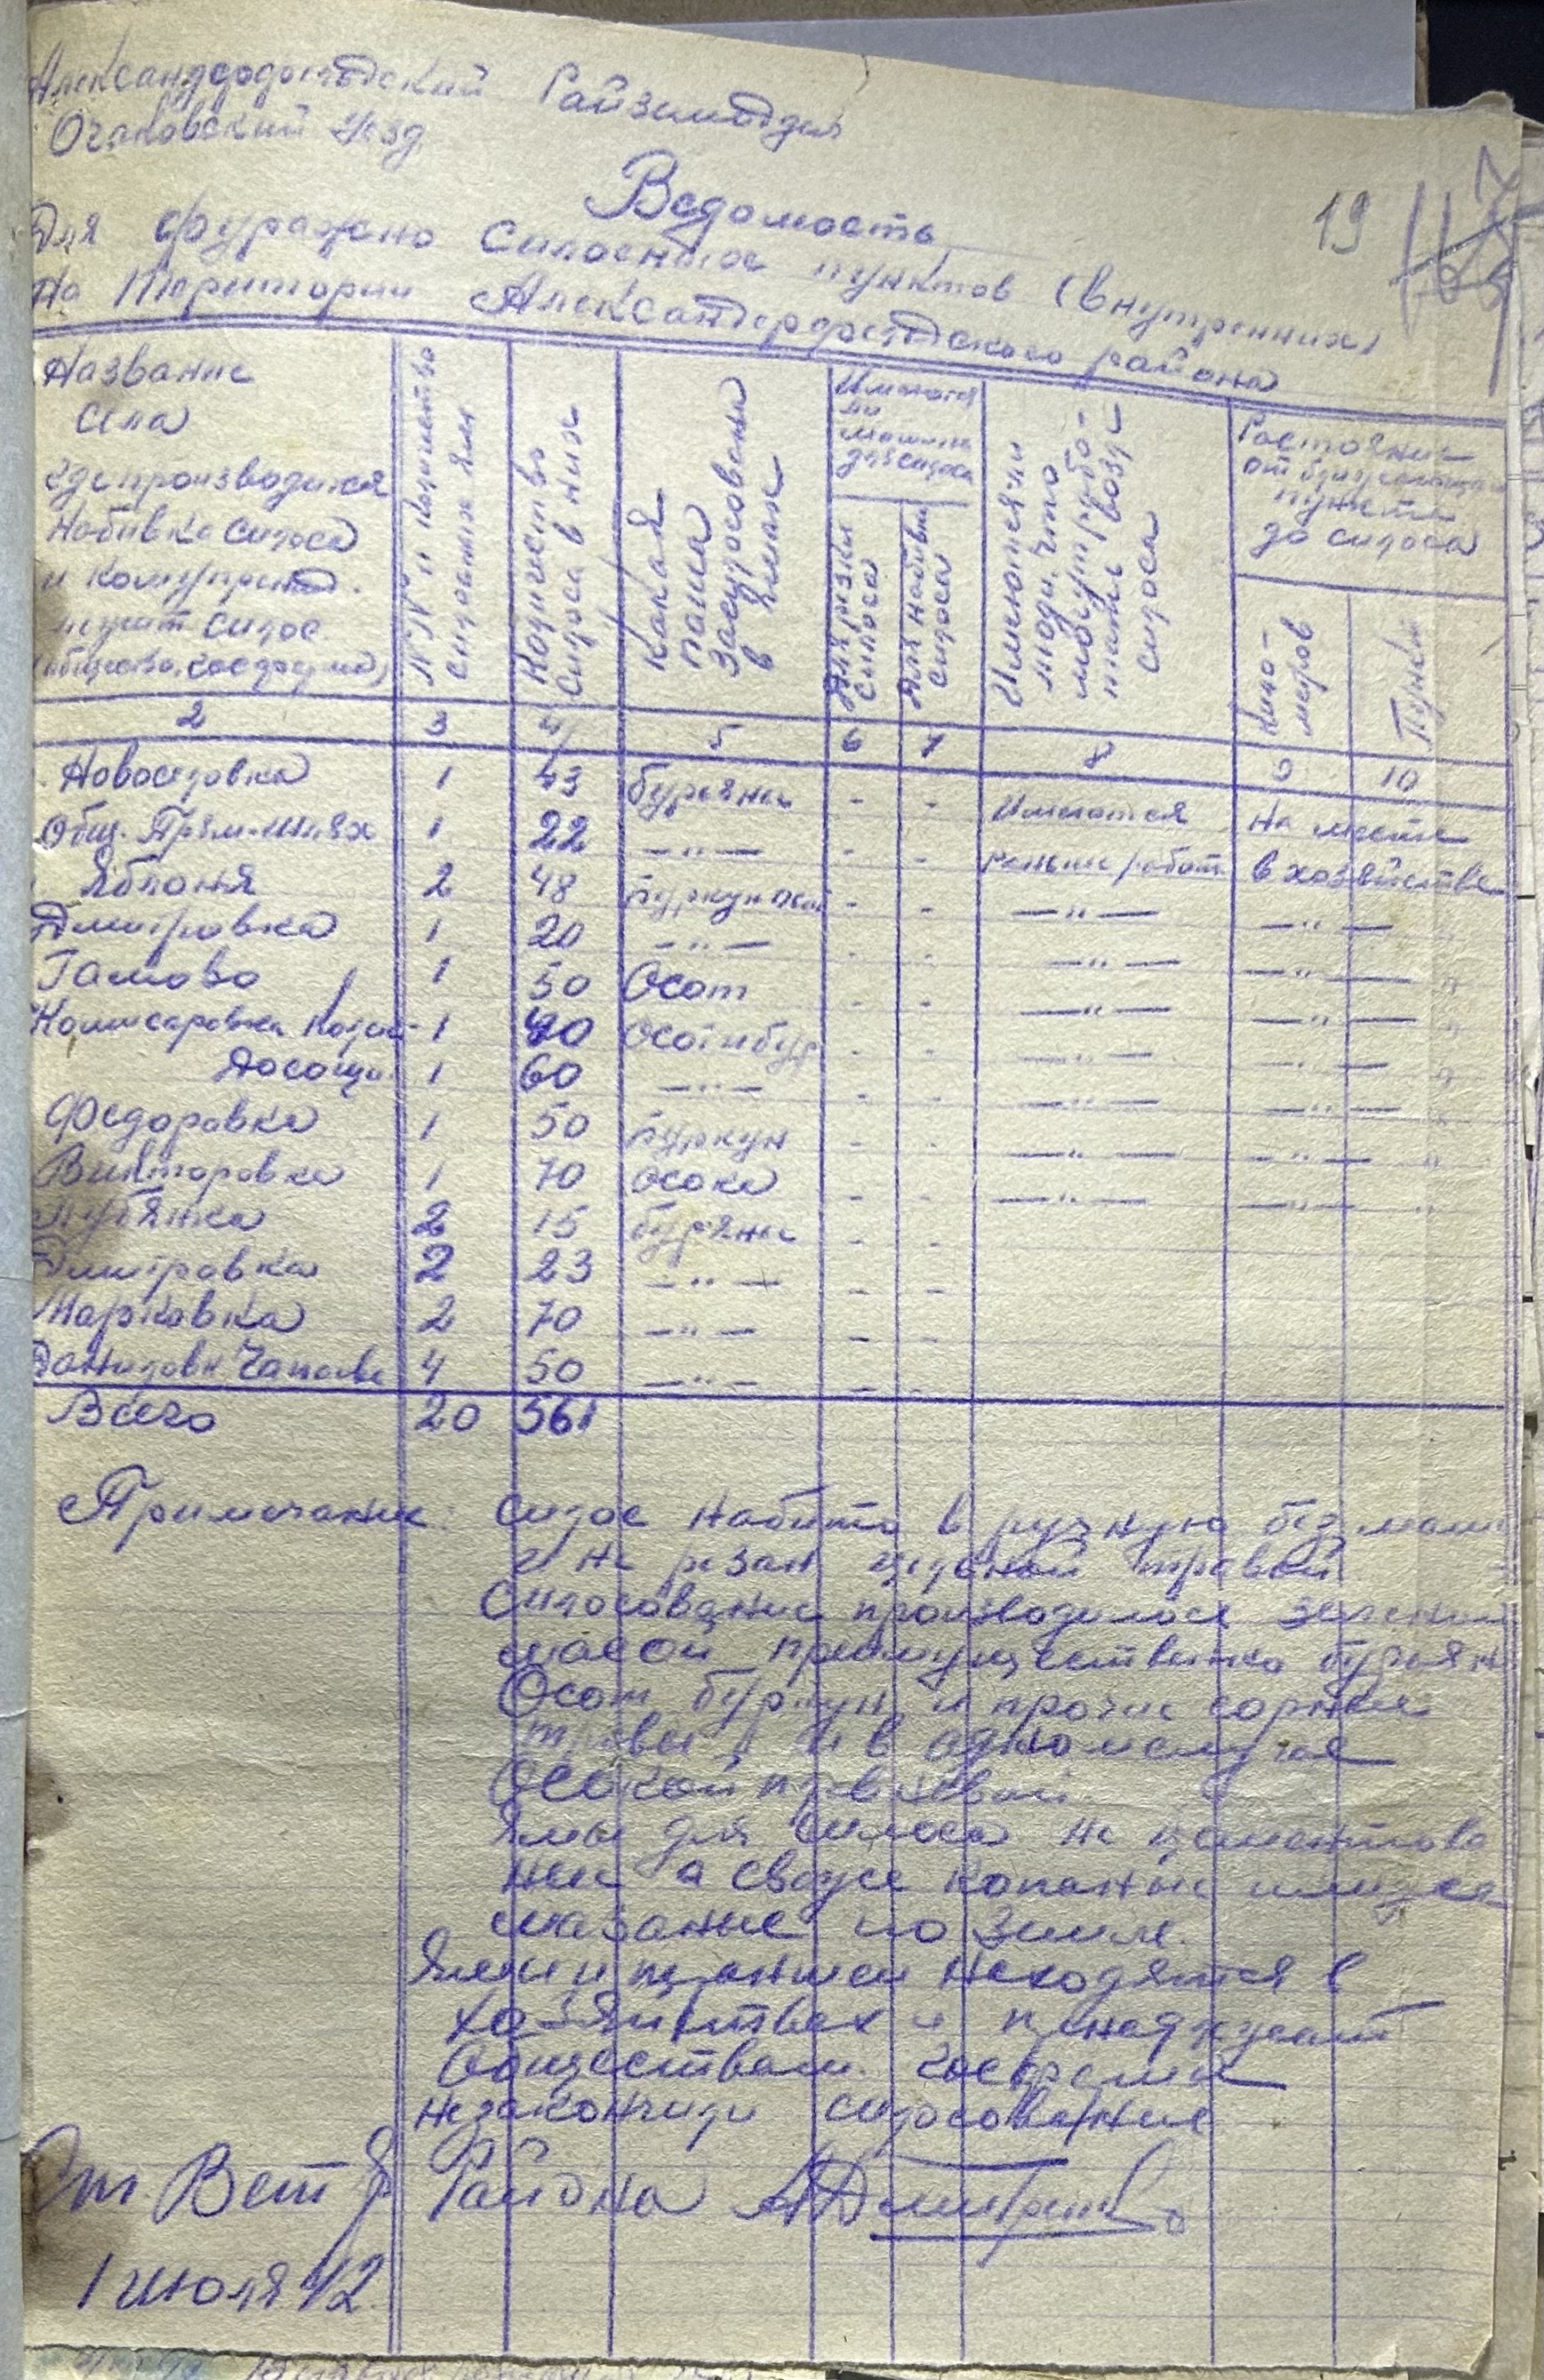 Александродарский Райземотдел
Очаковский уезд
19
Ведомость
Для фуражно силосных пунктов (внутренних)
на территории Александерфельдского района
Название
села
где производится
набивка силоса
и кому принад.
лежит силос
(общество, госферма)
№№ и количество
силосных ям
Количество
силоса в них
Какая
паша
засилосована
в ямах
Имеются
ли
машины
для силоса
Для резки
силоса
Для набивки
силоса
Имеются ли
люди, что
могут рабо-
тать возле
силоса
Растояние
от ближайшего
пункта
до силоса
Кило-
метров
Пункт
2 3 4 5 6 7 8 9 10
Новоселовка 1 43 бурьяны - - Имеются на месте
Общ. Прям-Шлях 1 22 —"— - - раньше работ. в хозяйстве
Яблоня 2 48 - - —"— —"—
Дмитровка 1 20 —"— - - —"— —"—
Гамово 1 50 Осот - - —"— —"—
Комисаровка 1 40 Осот и бур - - —"— —"—
1 60 —"— - - —"— —"—
Федоровка 1 50 Буркун - - —"— —"—
Викторовка 1 70 осока - - —"— —"—
Лубянка 2 15 бурьяны - -
Дмитровка 2 23 —"— - -
Марковка 2 70 —"— - -
Чапаева 4 50 —"— - -
Всего 20 561
Примечание: силос набито в ручную без маши
и не резан цельной травой
Силосование производилося зеленой
масой преимущественно бурьяны
Осот, буркун и прочие сорные
травы и в одном случае
Осокой
Ямы для силоса не цементова
ные а свеже копаные
мазаные по земле.
Ямы и траншеи находятся в
хозяйствах и принадлежат
обществам. Госферма
незакончили силосование
Ст. Вет Района
1 июля 42